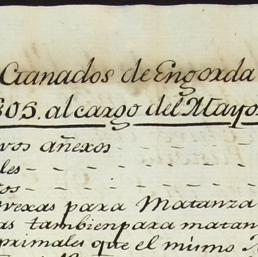 Ganados de Engorda
805. al cargo del Mayor
vos añexos
les
os
vexas para Matanza
as tambien para matan
primales que el mismo